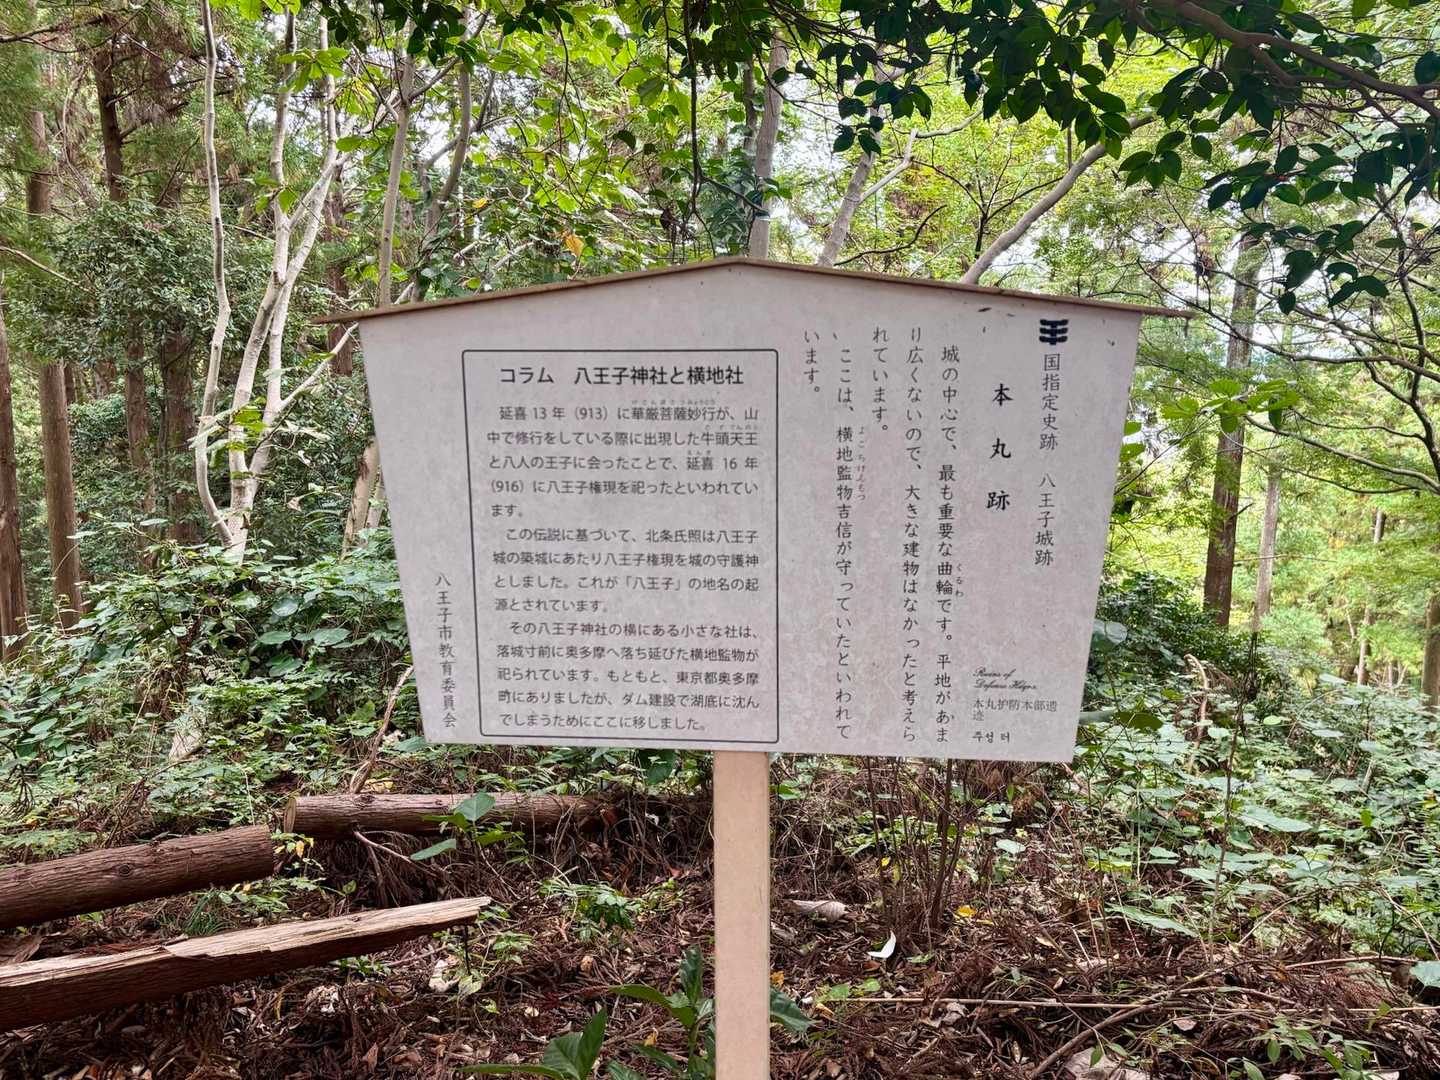 国指定史跡 八王子城跡
本丸跡
Ruins of
Defense Hdqrs.
本丸护防本部遗
迹
주성 터
城の中心で、最も重要な曲輪です。平地があま
くるわ
り広くないので、大きな建物はなかったと考えら
れています。
ここは、横地監物吉信が守っていたといわれて
よこちけんもつ
います。
コラム 八王子神社と横地社
延喜 13 年（913）に華厳菩薩妙行が、山
けごんぼさつみょうこう
中で修行をしている際に出現した牛頭天王
ごずてんのう
と八人の王子に会ったことで、延喜 16 年
えんぎ
（916）に八王子権現を祀ったといわれてい
ます。
この伝説に基づいて、北条氏照は八王子
城の築城にあたり八王子権現を城の守護神
としました。これが「八王子」の地名の起
源とされています。
その八王子神社の横にある小さな社は、
落城寸前に奥多摩へ落ち延びた横地監物が
祀られています。もともと、東京都奥多摩
町にありましたが、ダム建設で湖底に沈ん
でしまうためにここに移しました。
八王子市教育委員会